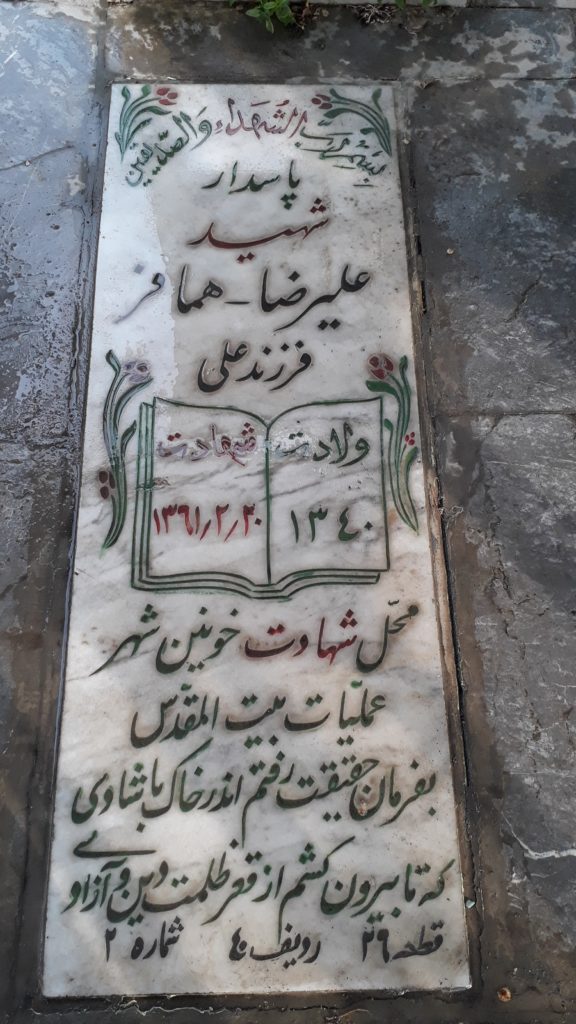 بسم رب الشهداء والصدیقین
پاسدار
شهید
علیرضا - همافر
فرزند علی
ولادت شهادت
۱۳۴۰ ۱۳۶۱/۲/۲۰
محل شهادت خونین شهر
عملیّات بیت المقدّس
بفرمان حقیقت رفتم اندر خاک با شادی
که تا بیرون کشم از قعر ظلمت دین و آزادی
قطعه ۲۶ ردیف ۴۰ شماره ۲